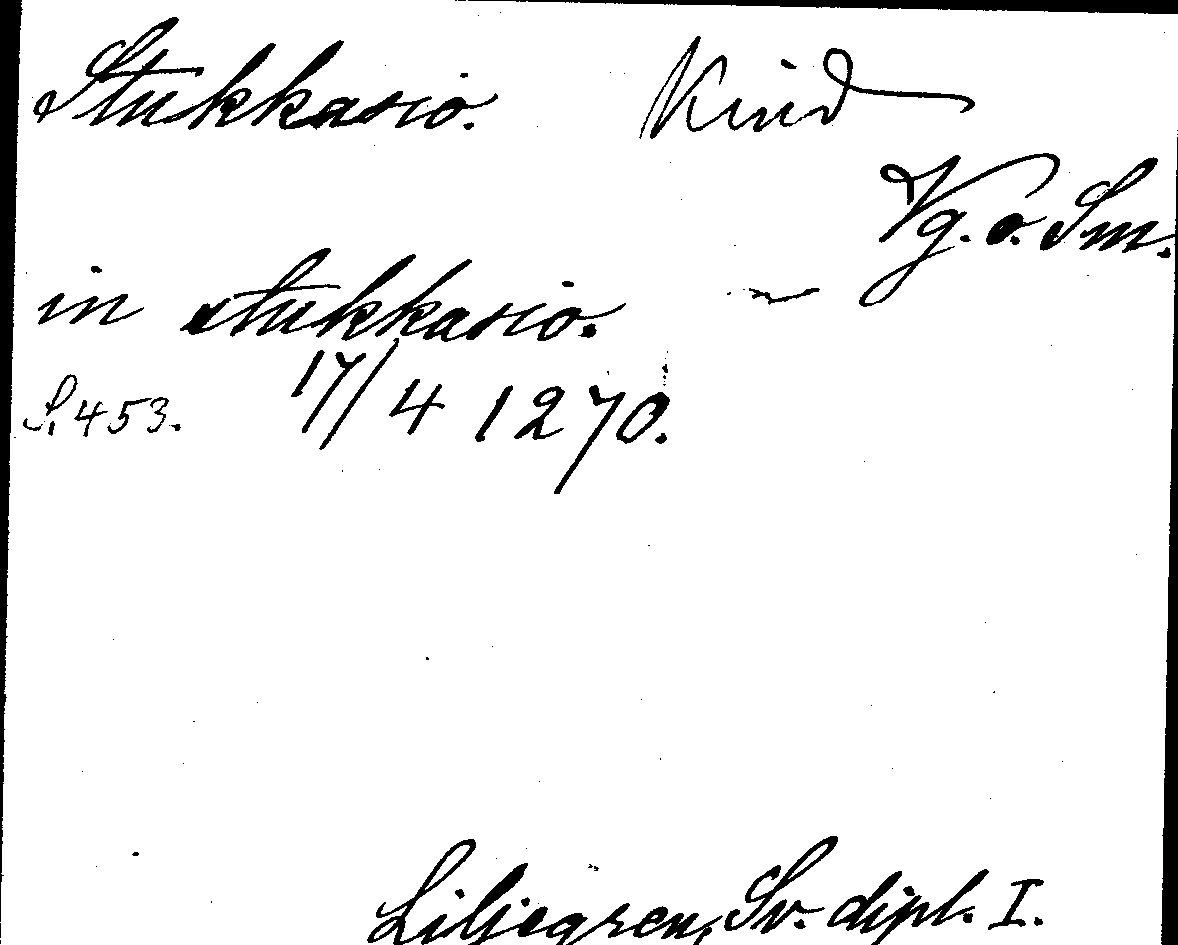 Stukkasio. Kind
Vg. o. Sm.
in stukkasio.
S. 453. 17/4 1270.
Liljegren, Sv. dipl. I.